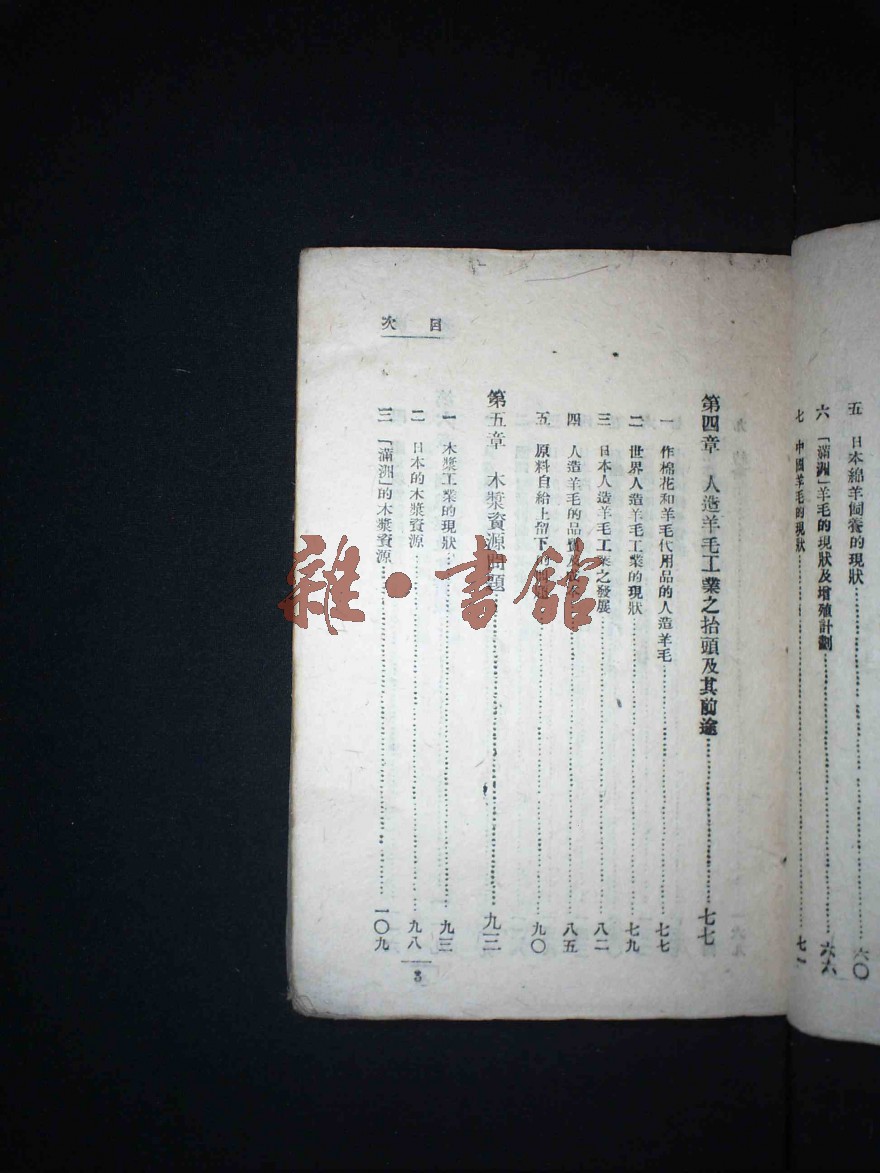 五 日本綿羊飼養的現狀……六〇
六 「滿洲」羊毛的現狀及增殖計劃……六六
七 中國羊毛的現狀……七一
目次
第四章 人造羊毛工業之抬頭及其前途……七七
一 作棉花和羊毛代用品的人造羊毛……七七
二 世界人造羊毛工業的現狀……七九
三 日本人造羊毛工業之發展……八二
四 人造羊毛的品質……八五
五 原料自給上留下的……九〇
第五章 木漿資源問題……九三
一 木漿工業的現狀……九三
二 日本的木漿資源……九八
三 「滿洲」的木漿資源……一〇九
3
雜·書館